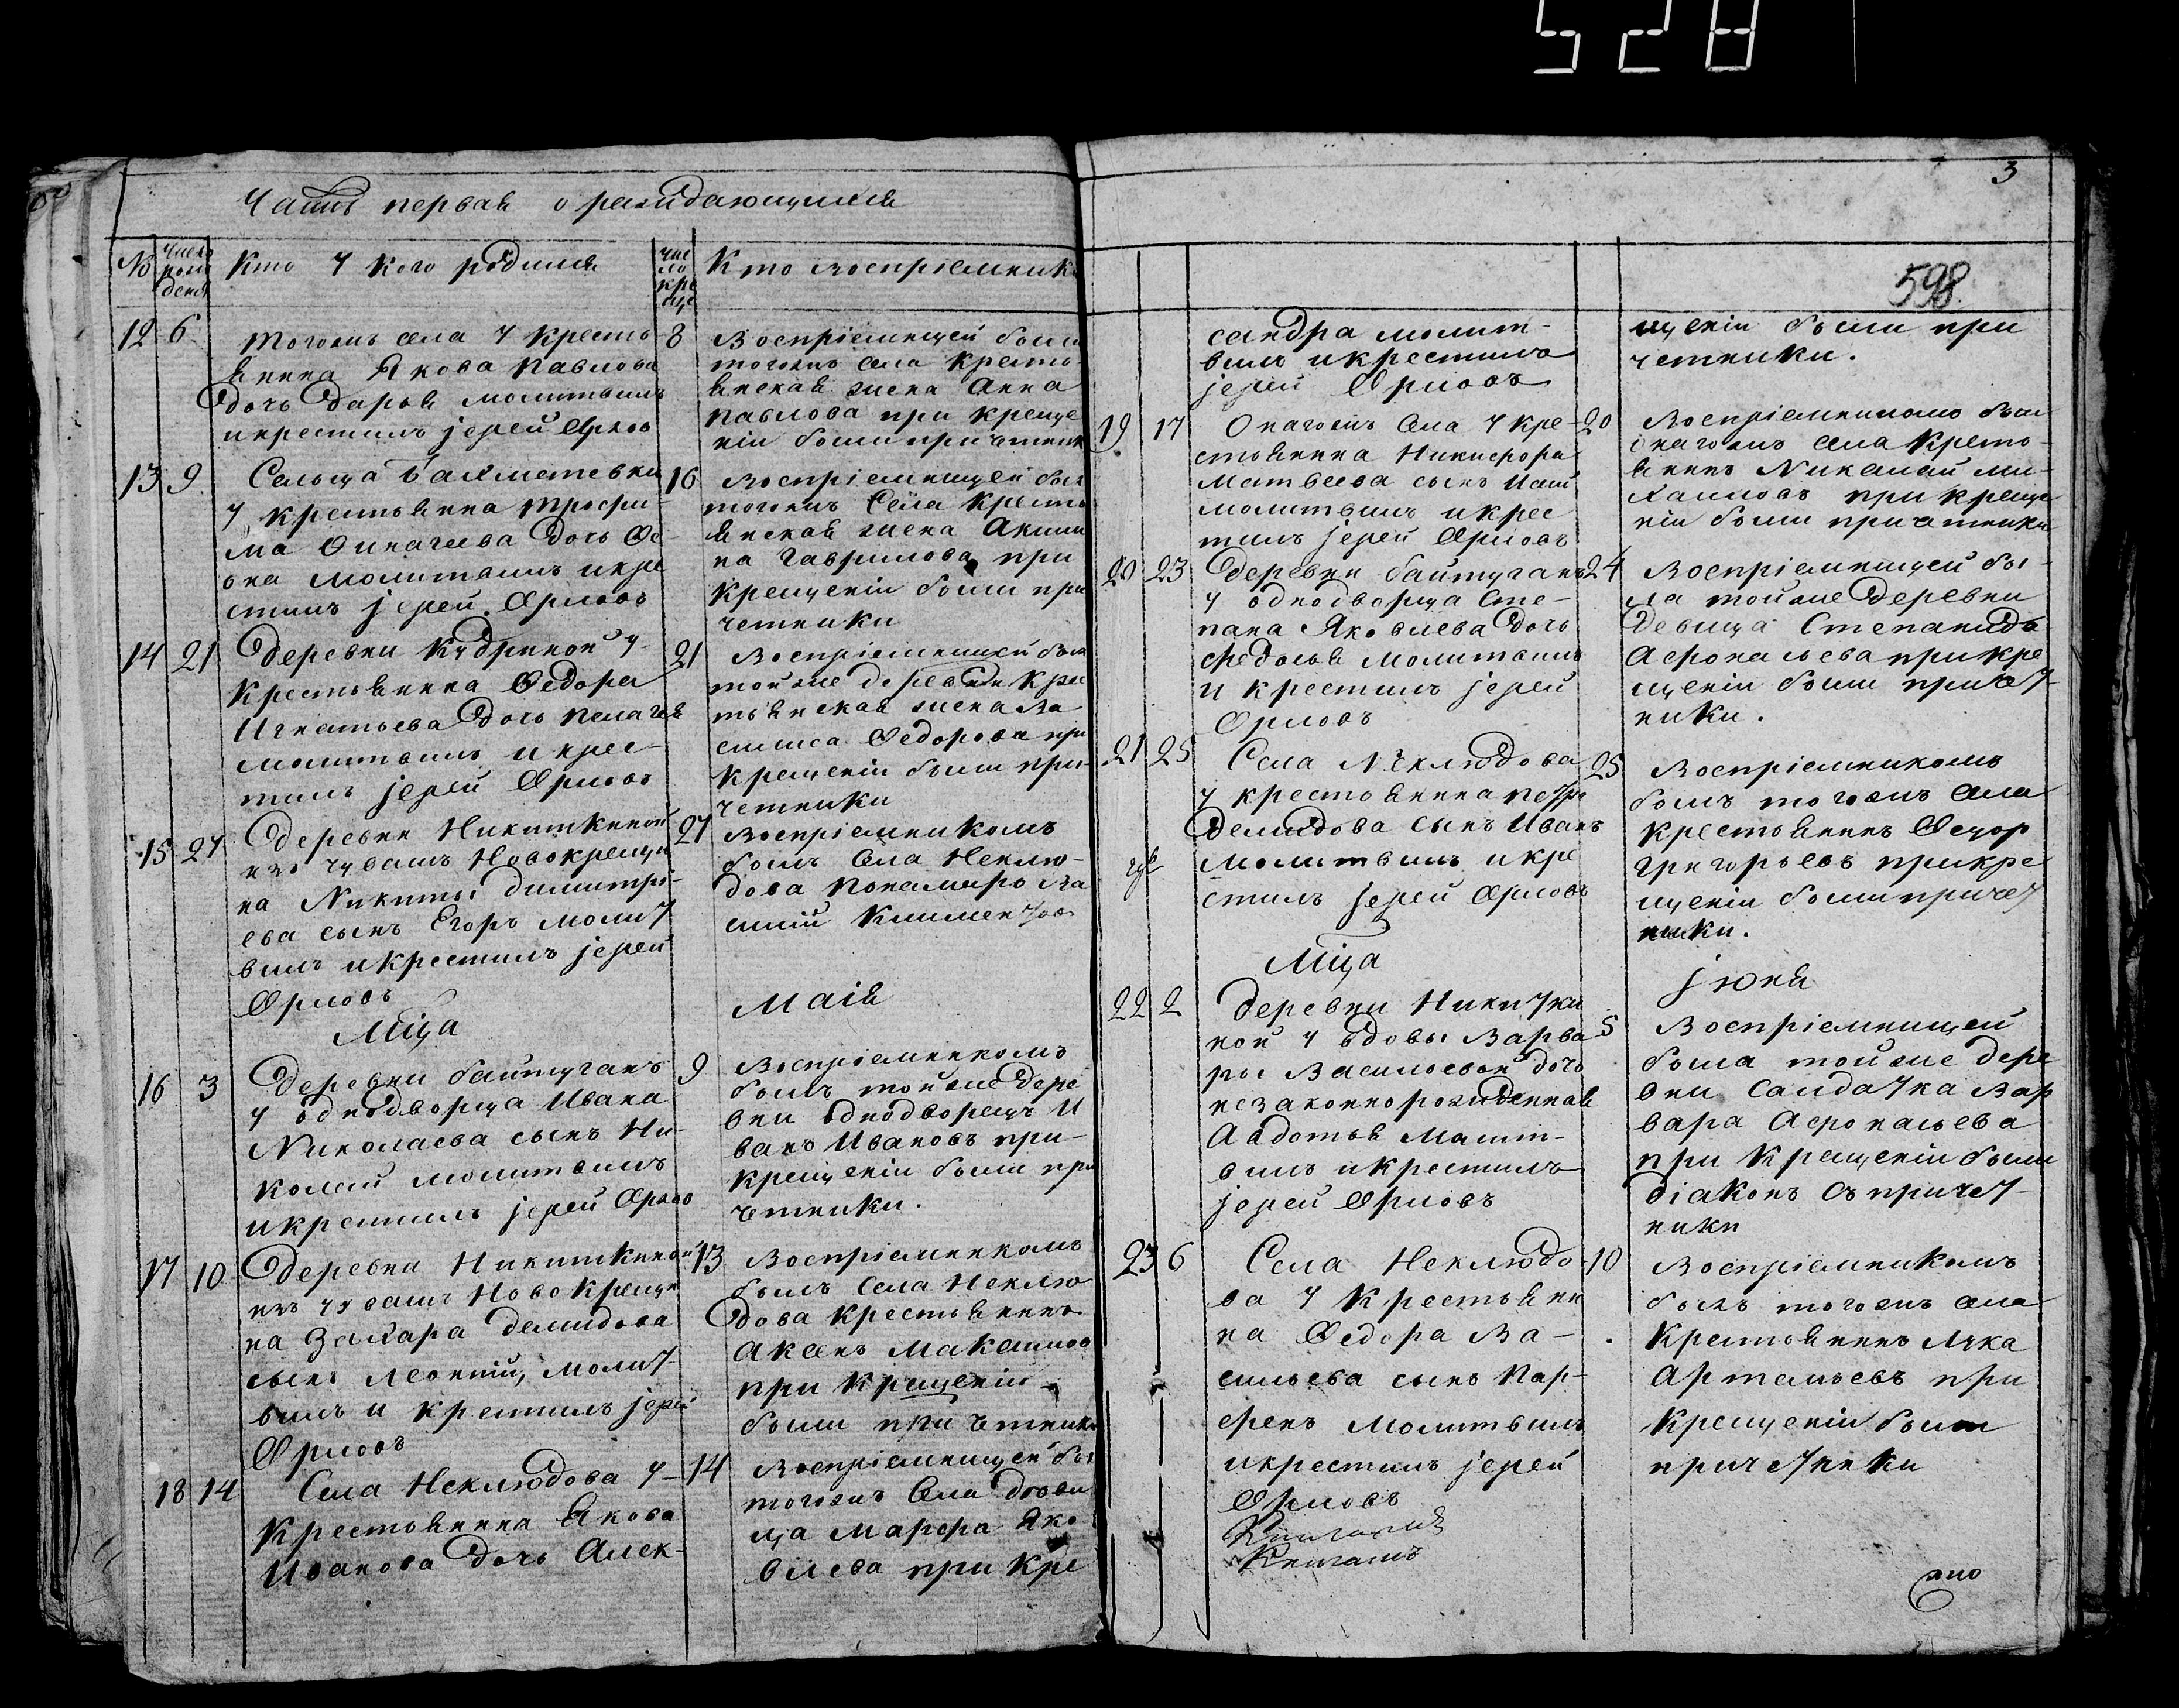 528
Часть первая о раждающихся
№
число рождения
Кто у кого родился
число крещения
Кто восприемники
12 6
тогожъ села у кресть
янина Якова Павлова
дочь Дарья молитвилъ
и крестилъ іерей Орлов
8
Восприемницей была
тогожъ села кресть
янская жена Анна
Павлова при креще
ніи были причетник
13 9
Сельца Бахметевки
у крестьянина Трофи-
ма дочь Ѳе-
она молитвилъ и кре
стилъ іерей Орловъ
16
Воспріемницей был
тогожъ села кресть
янская жена Акили
на Гаврилова при
крещеніи были при
четники
14 21
Деревни Кудриной у
крестьянина Ѳедора
Игнатьева дочь Пелагея
молитвилъ и крес-
тилъ іерей Орловъ
21
Воспріемницей была
тойже деревни крес
тьянская жена Ва
силиса Ѳедорова при
крещеніи были при-
четники
15 27
Деревни Никиткиной
изъ чувашъ новокреще
на Никиты Димитрі-
ева сынъ Егоръ молит
вилъ и крестилъ іерей
Орловъ
27
Воспріемникомъ
былъ села Неклю-
дова пономарь Ва
силій Климентов
Мца Маія
16 3
Деревни Байтуганъ
у однодворца Ивана
Николаева сынъ Ни-
колай молитвилъ
и крестилъ іерей Орлов
9
Воспріемникомъ
былъ тойже дере
вни однодворецъ И
ванъ Ивановъ при-
крещеніи были при
четники.
17 10
Деревни Никиткиной
изъ чувашъ новокреще
на Захара Демидова
сынъ Леонтій, молит
вилъ и крестилъ іерей
Орловъ
13
Воспріемникомъ
былъ села Неклю
дова крестьянинъ
Аксенъ Максимов
при крещеніи
были при четники
18 14
Села Неклюдова у
крестьянина Якова
Иванова дочь Алек-
14
Воспріемницей бы
тогожъ села дѣви
ца Марфа Яко
влева при кре
3
598
сандра молит-
вилъ и крестилъ
іерей Орловъ
щеніи были при
четники.
19 17
Онагожъ села у кре-
стьянина Никифора
Матвеева сынъ
молитвилъ и крес
тилъ іерей Орловъ
20
Воспріемникомъ был
онагожъ села кресть-
янинъ Николай Ми-
хаиловъ при креще
ніи были причетники
20 23
Деревни Байтуганъ
у однодворца Сте-
пана Яковлева дочь
Федосья молитвилъ
и крестилъ іерей
Орловъ
24
Воспріемницей бы-
ла тойже деревни
девица Степанида
Афонасьева при кре
щеніи были причет
ники.
21 25
Села Неклюдова
у крестьянина Петра
Демидова сынъ Иванъ
молитвилъ и кре
стилъ іерей Орловъ
25
Воспріемникомъ
былъ тогожъ села
крестьянинъ Ѳедор
Григорьевъ при кре
щеніи были причет
ники.
Мца іюня
22 2
Деревни Никитки
ной у вдовы Варва
ры Васильевой дочь
незаконнорожденная
Авдотья молит-
вилъ и крестилъ
іерей Орловъ
5
Воспріемницей
была тойже дере
вни салдатка Вар
вара Афонасьева
при крещеніи были
діаконъ съ причет-
ники
23 6
Села Неклюдо
ва у крестьяни
на Ѳедора Ва-
сильева сынъ Пар-
фенъ молитвилъ
и крестилъ іерей
Орловъ
10
Воспріемникомъ
былъ тогожъ села
крестьянинъ Лука
Артемьевъ при
крещеніи были
причетники